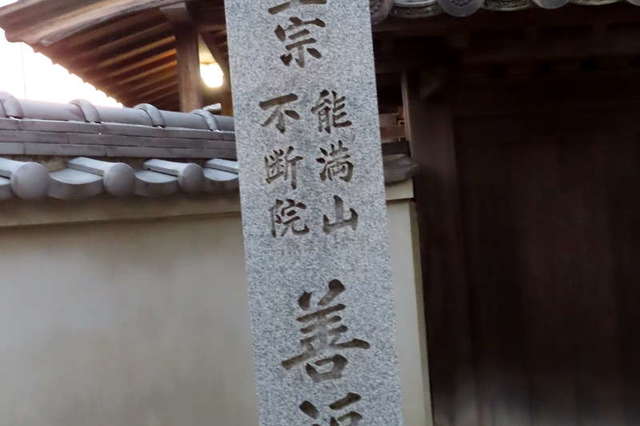 宗
能満山
不断院
善